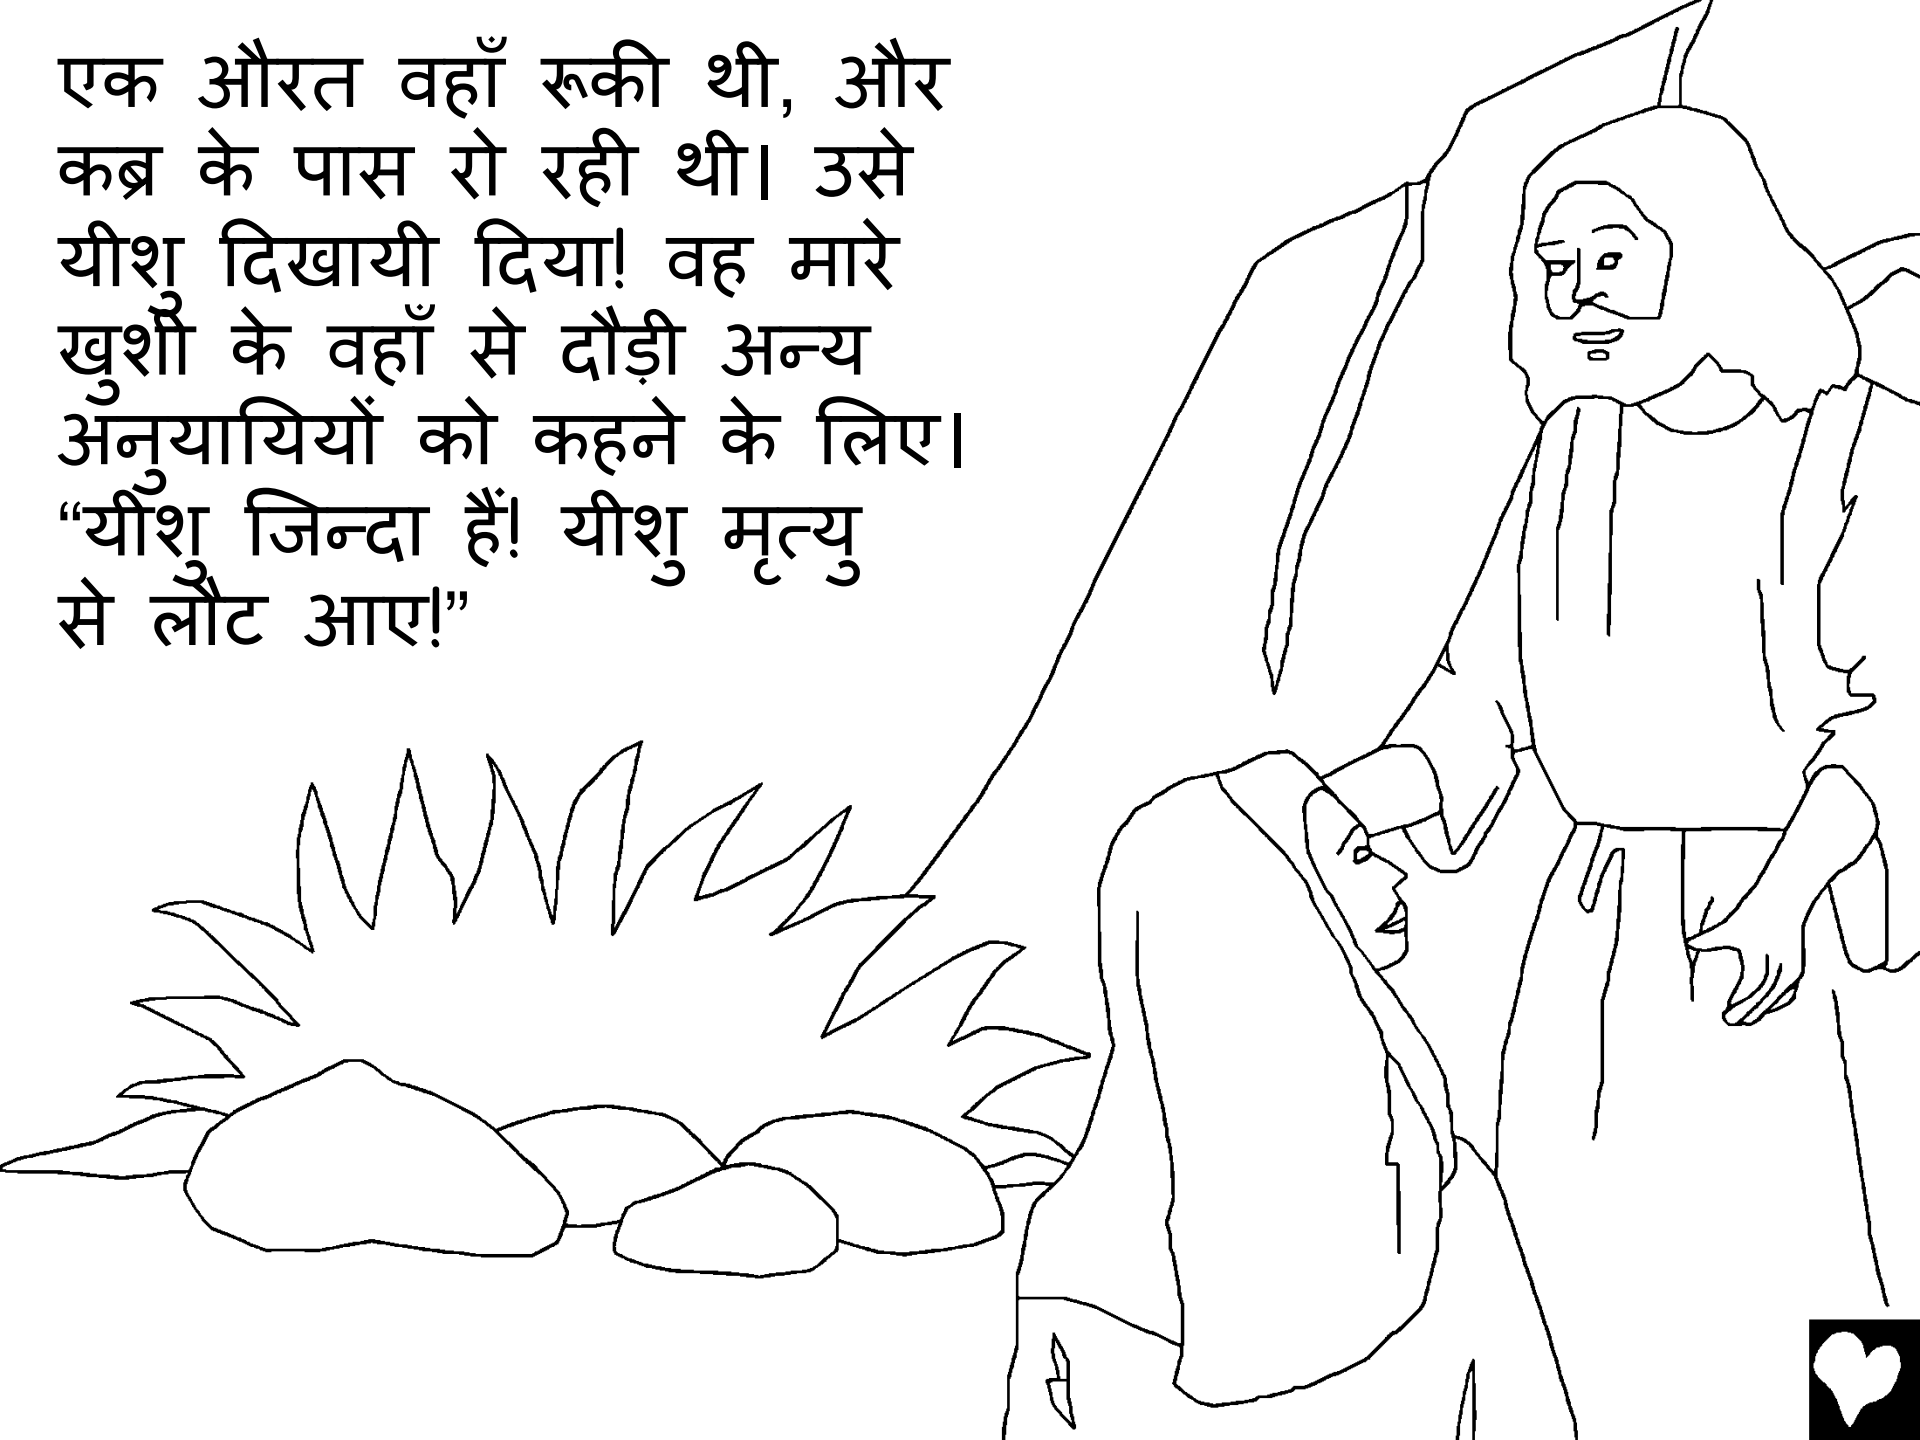 एक औरत वहाँ रूकी थी, और
कब्र के पास रो रही थी। उसे
यीशु दिखायी दिया! वह मारे
खुशी के वहाँ से दौड़ी अन्य
अनुयायियों को कहने के लिए।
“यीशु जिन्दा हैं! यीशु मृत्यु
से लौट आए!”